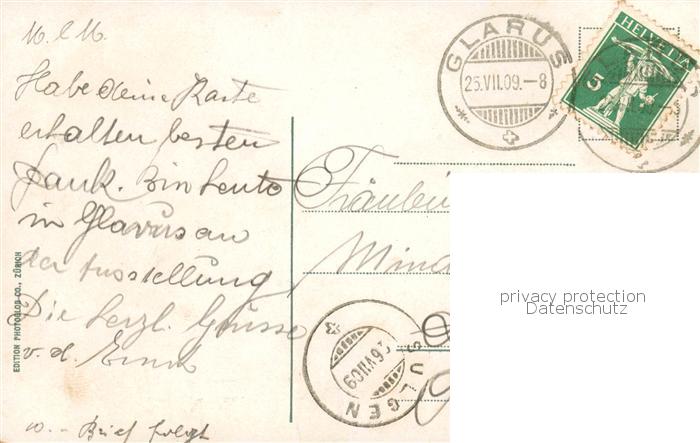 M. l. M.
Habe deine Karte
erhalten besten
Dank. Bin heute
in Glarus an
der Ausstellung
Die herzl. Grüsse
v. d. Emm
w. – Brief folgt
EDITION PHOTOGLOB-CO., ZÜRICH
GLARUS
25.VII.09.–8
HELVETIA
5
Fräulein
Mina
SULGEN
26.VII.09
privacy protection
Datenschutz